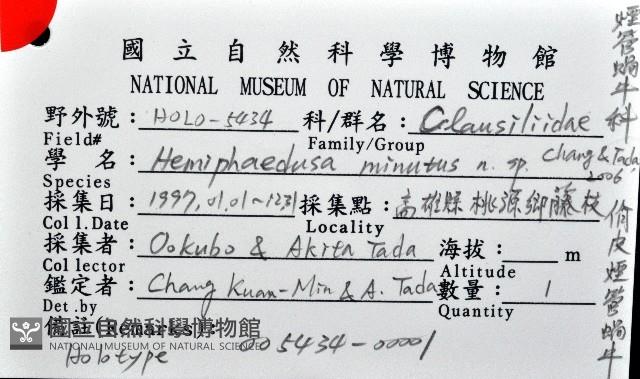 國立自然科學博物館
NATIONAL MUSEUM OF NATURAL SCIENCE
野外號： HOLO-5434 科/群名： Clausiliidae
Field# Family/Group
學 名： Hemiphaedusa minutus n. sp. Chang & Tada 2006
Species
採集日： 1997.01.01~1231 採集點： 高雄縣桃源鄉藤枝
Col l.Date Locality
採集者： Ookubo & Akita Tada 海拔： m
Col lector Altitude
鑑定者： Chang Kuan-Min & A. Tada 數量： 1
Det .by Quantity
備註(Remarks)：
Holotype 005434-00001
國立自然科學博物館
NATIONAL MUSEUM OF NATURAL SCIENCE
煙管蝸牛科
煙管蝸牛